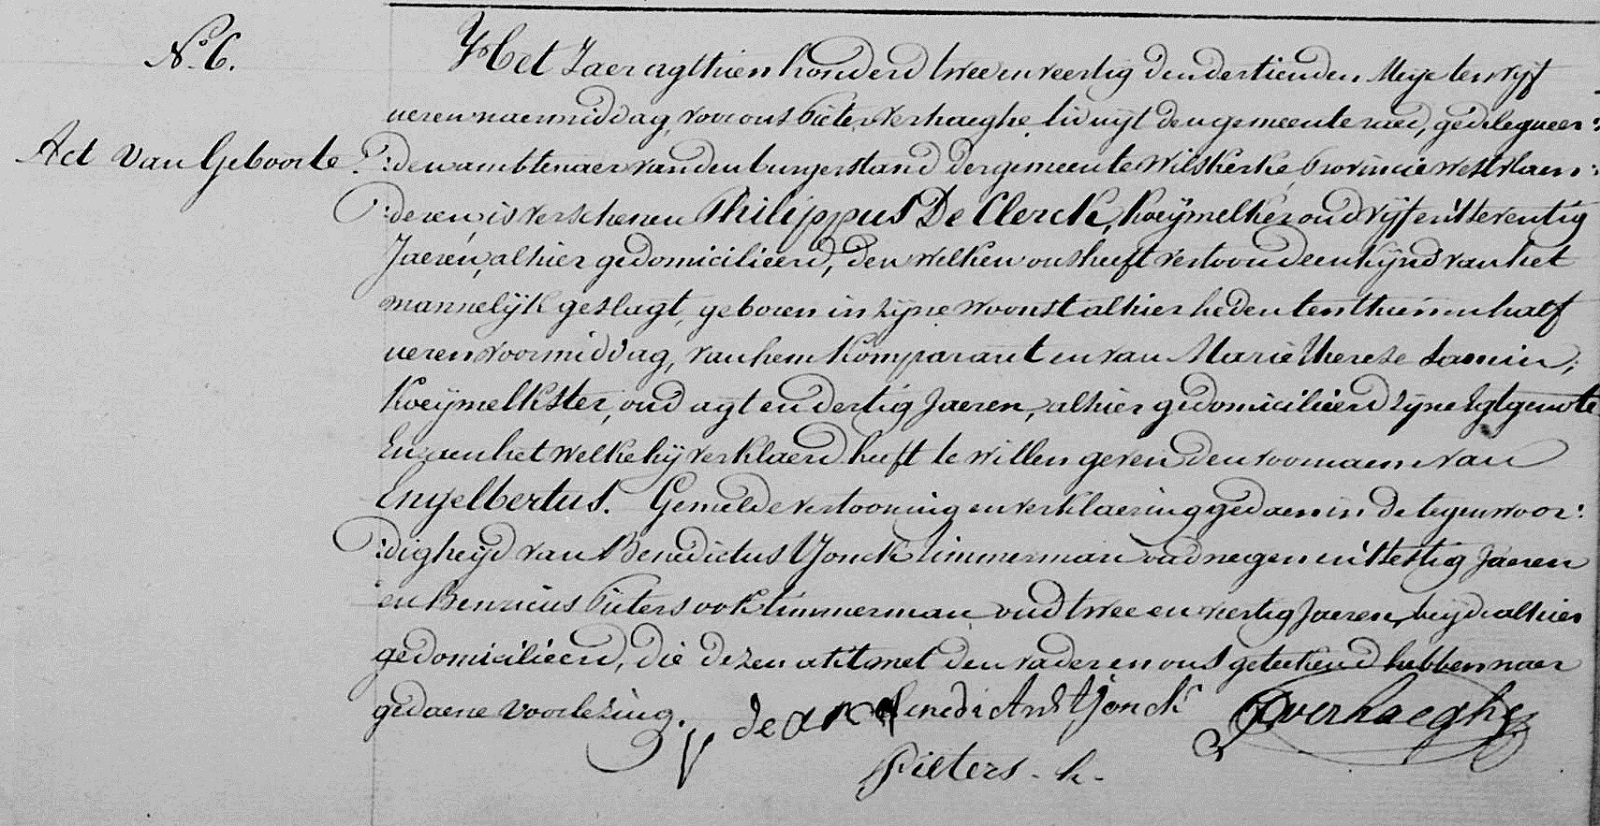 N.º 6.
Act van Geboorte.
Het Jaer agthien honderd twee en veertig den dertienden Meije ten vijf
ueren naermiddag, voor ons Pieter Verhaeghe lid uijt den gemeente raed, gedelegueer:
:den ambtenaer van den burgerstand der gemeente Wilskerke, Provincie Westvlaen:
:deren, is verschenen Philippus De Clerck, koeijmelker oud vijf en tseventig
Jaeren, alhier gedomicilieerd, den welken ons heeft vertoond een kijnd van het
mannelijk geslagt, geboren in zijne woonst alhier heden ten thien en half
ueren voormiddag, van hem komparant en van Marie Therese
koeijmelkster, oud agt en dertig Jaeren, alhier gedomicilieerd zijne Egtgenote
En aen het welke hij verklaerd heeft te willen geven den voornaem van
Engelbertus. Gemelde vertooning en verklaering gedaen in de tegenwoor:
:digheijd van Benedictus tJonck timmerman oud negen en tsestig Jaeren
en Henricus Pieters ook timmerman, oud twee en viertig Jaeren, beijde alhier
gedomicilieerd, die dezen akt met den vader en ons geteekend hebben naer
gedaene voorlezing.
Benedictus tJonck P Verhaeghe
Pieters . h .